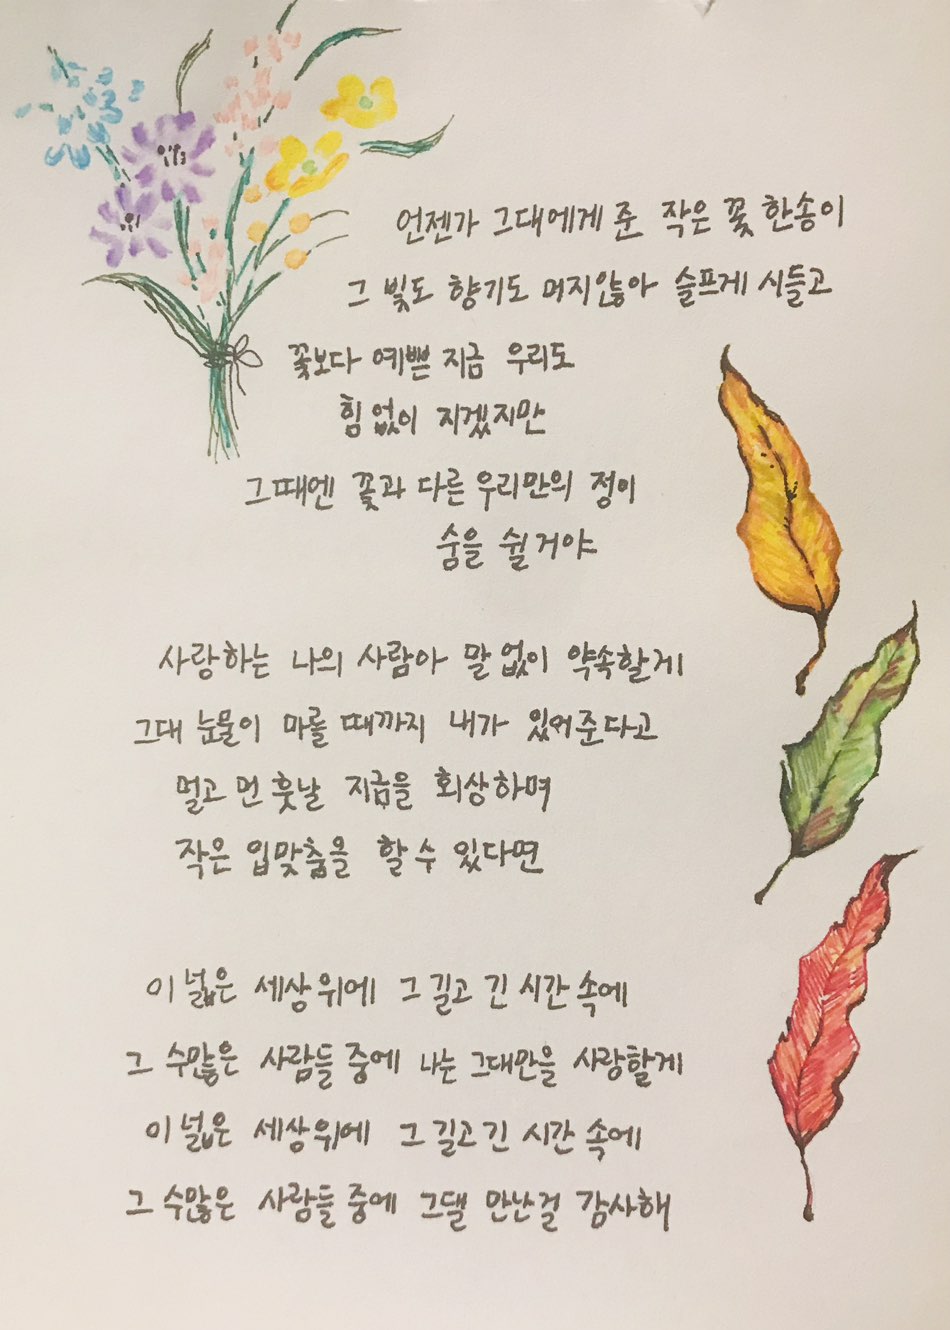 언젠가 그대에게 준 작은 꽃 한송이
그 빛도 향기도 머지않아 슬프게 시들고
꽃보다 예쁜 지금 우리도
힘없이 지겠지만
그때엔 꽃과 다른 우리만의 정이
숨을 쉴거야
사랑하는 나의 사람아 말없이 약속할게
그대 눈물이 마를 때까지 내가 있어준다고
멀고 먼 훗날 지금을 회상하며
작은 입맞춤을 할 수 있다면
이 넓은 세상위에 그 길고 긴 시간 속에
그 수많은 사람들 중에 나는 그대만을 사랑할게
이 넓은 세상위에 그 길고 긴 시간 속에
그 수많은 사람들 중에 그댈 만난걸 감사해